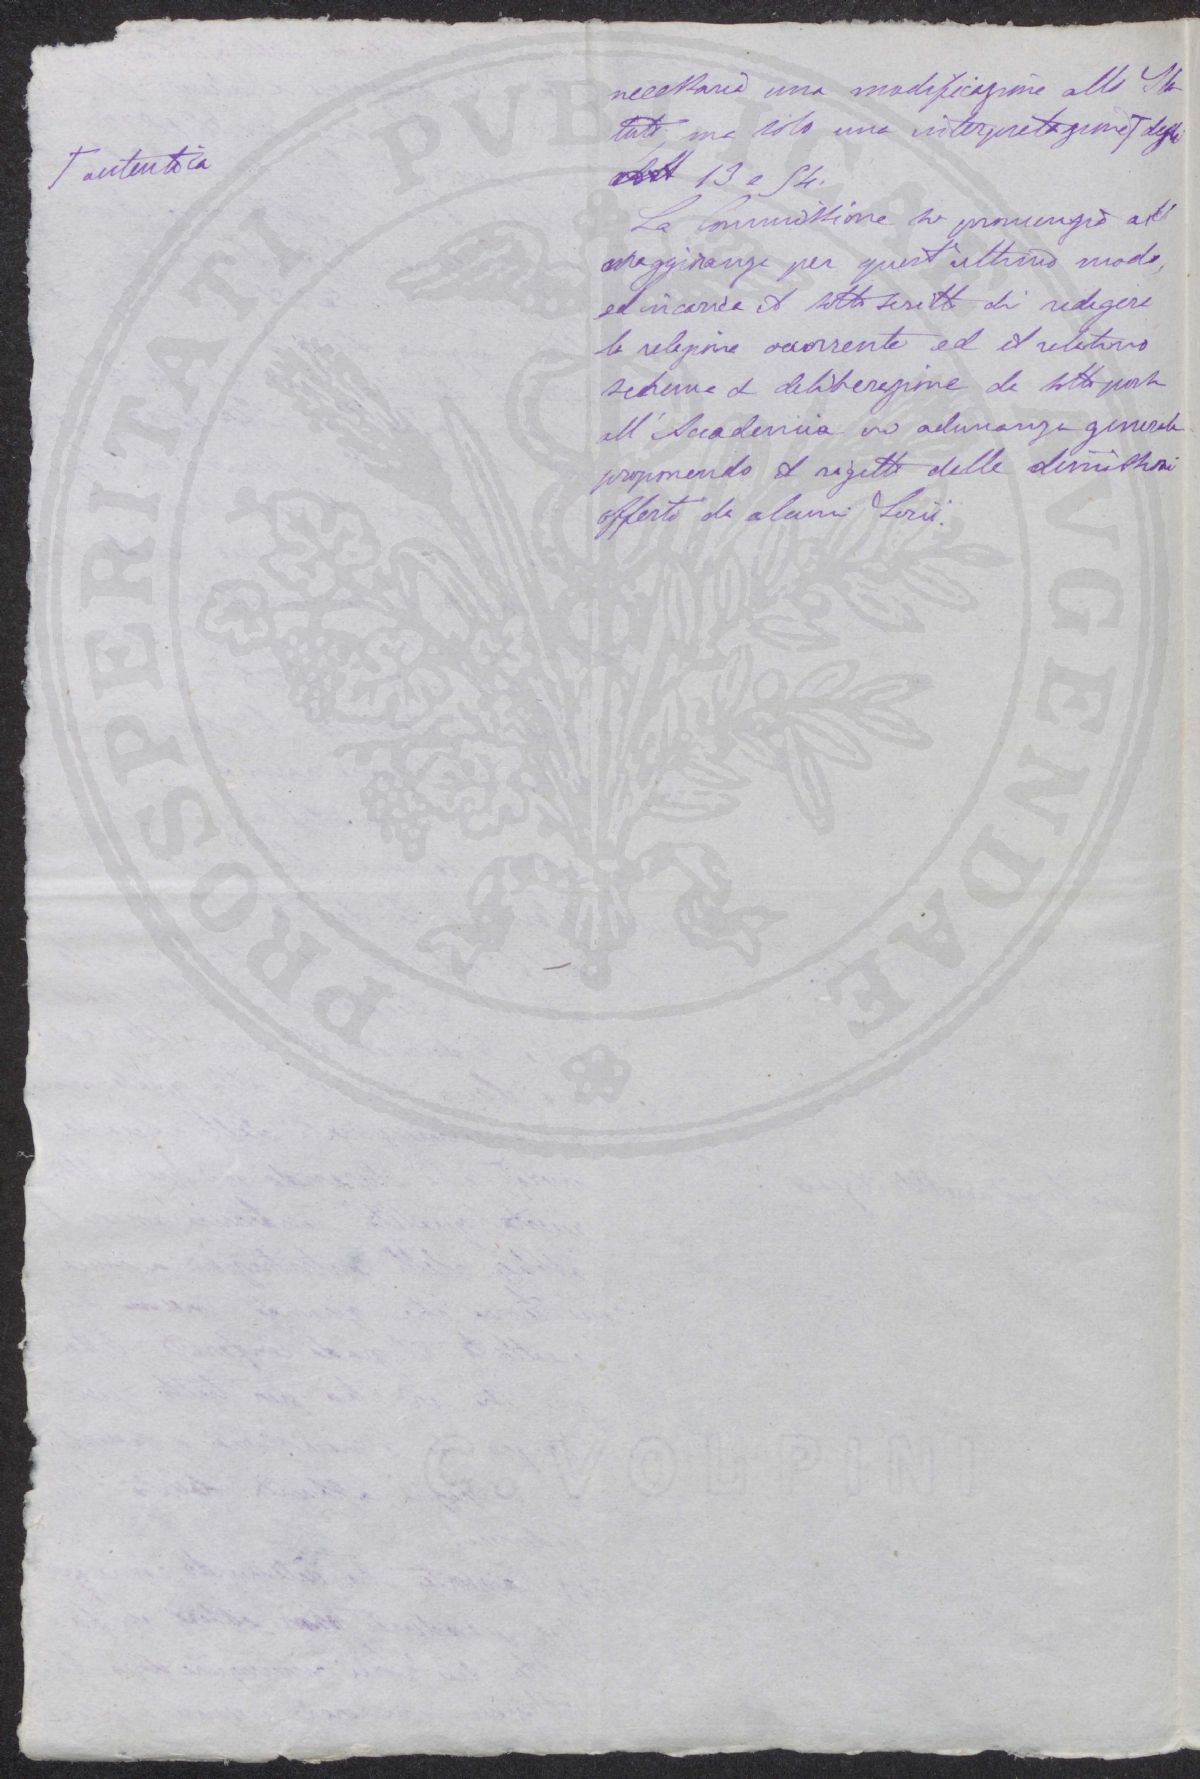 necessaria una modificazione allo Sta
tuto, ma solo una interpretazione Ƭ degli
art 13 e 54.
Ƭ autentica
La Commissione si pronunziò a
maggioranza per quest'ultimo modo,
ed incarica il sottoscritto di redigere
la relazione occorrente ed il relativo
schema di deliberazione da sottoporsi
all'Accademia in adunanza generale
proponendo il rigetto delle dimissioni
offerte da alcuni Socii.
PROSPERITATI PUBLICAE AUGENDAE
C. VOLPINI